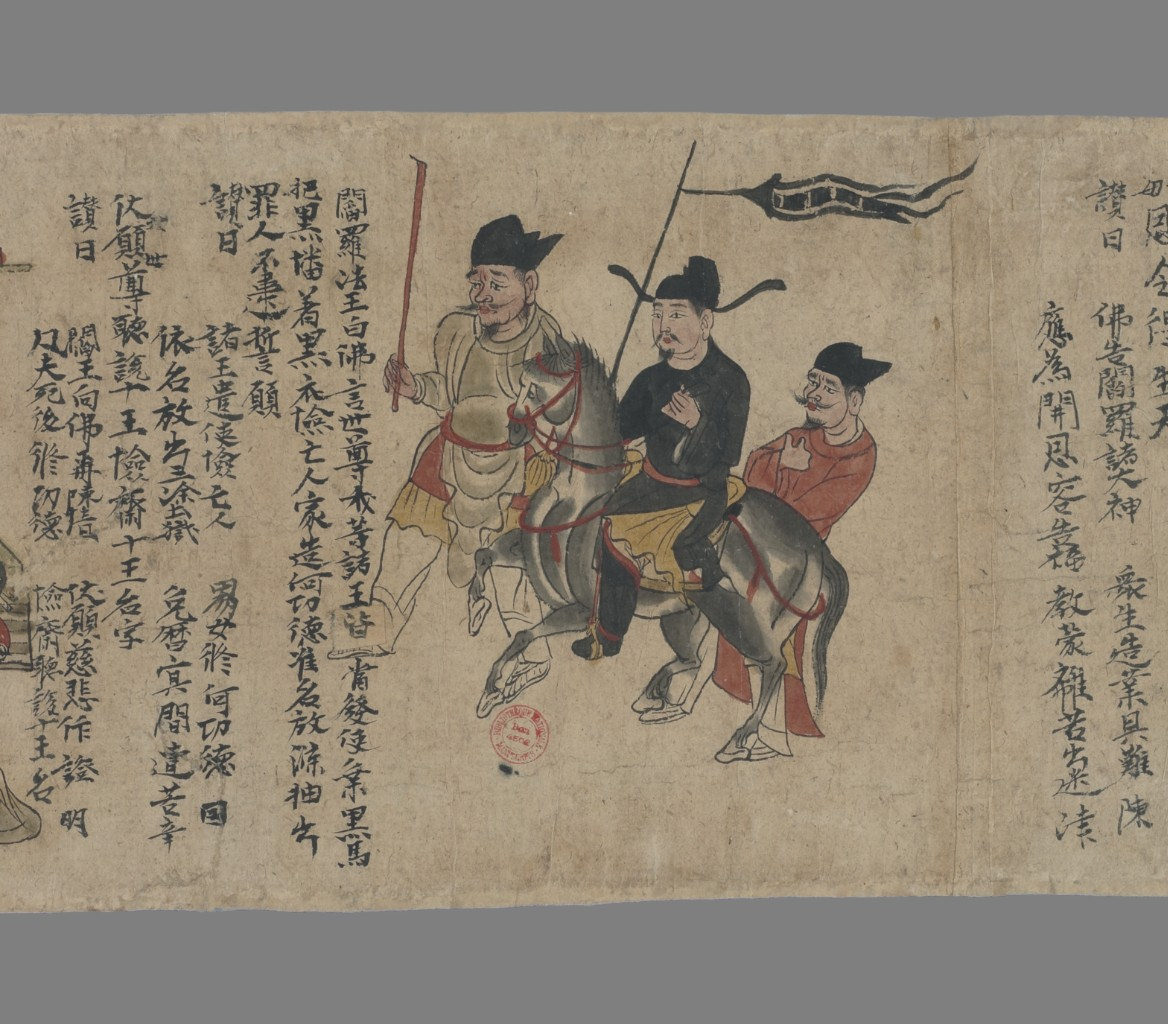 恩令得生天
讃曰 佛告閻羅諸大神 衆生造業具難陳
應為開恩容告福 教蒙離苦出迷津
閻羅法王白佛言世尊我等諸王皆當發使乗黒馬
把黒墦着黒衣撿亡人家造何功德准名放滌抽出
罪人不棄誓願
讃曰 諸王遣使撿亡人 男女修何功德因
依名放出三塗獄 免曆㝠間遭苦辛
伏願世尊聽說十王撿齋十王名字
讃曰 閻王向佛再陳情 伏願慈悲作證明
凡夫死後修功德 撿齋聽說十王名